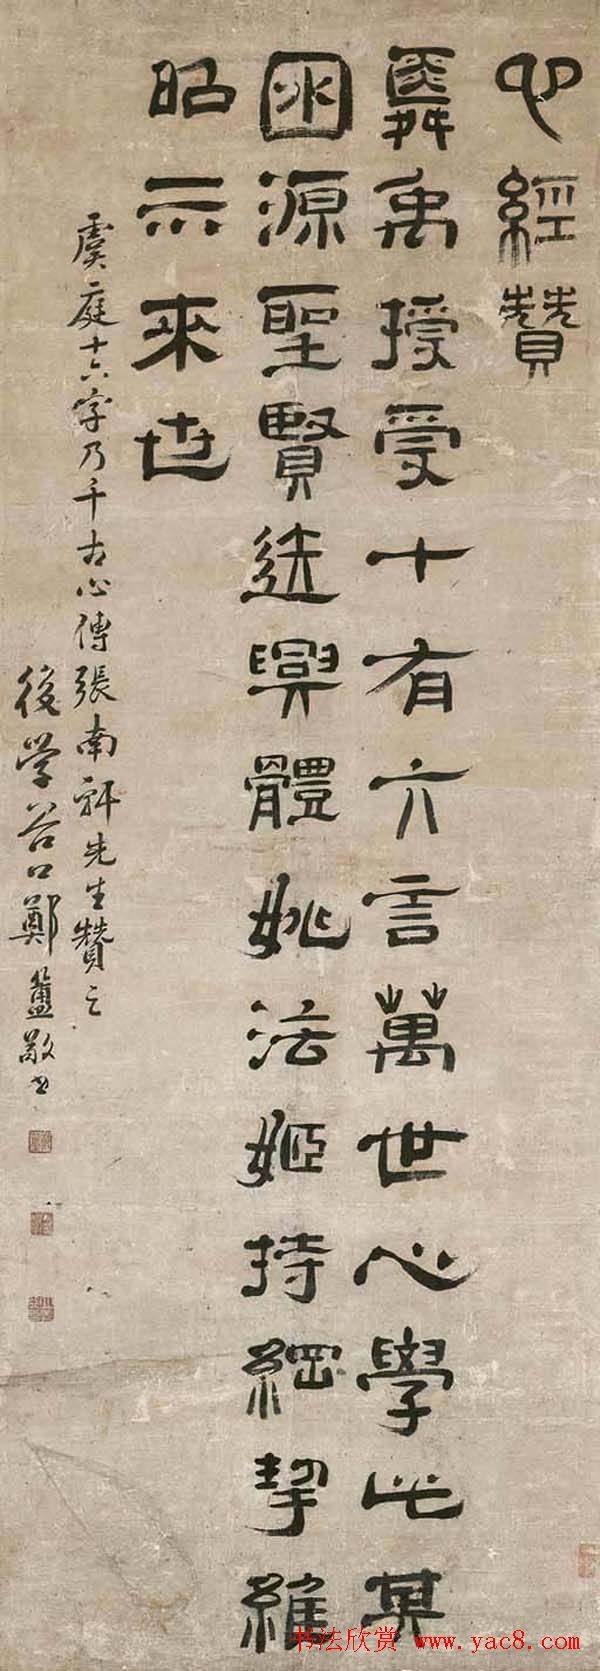 心經贊
舜禹授受十有六言萬世心學此其
困源聖賢迭興體姚法姬持綱挈維
昭示來世
虞庭十六字乃千古心傳張南軒先生贊之
後學谷口鄭簠敬書
书法欣赏 www.yac8.com